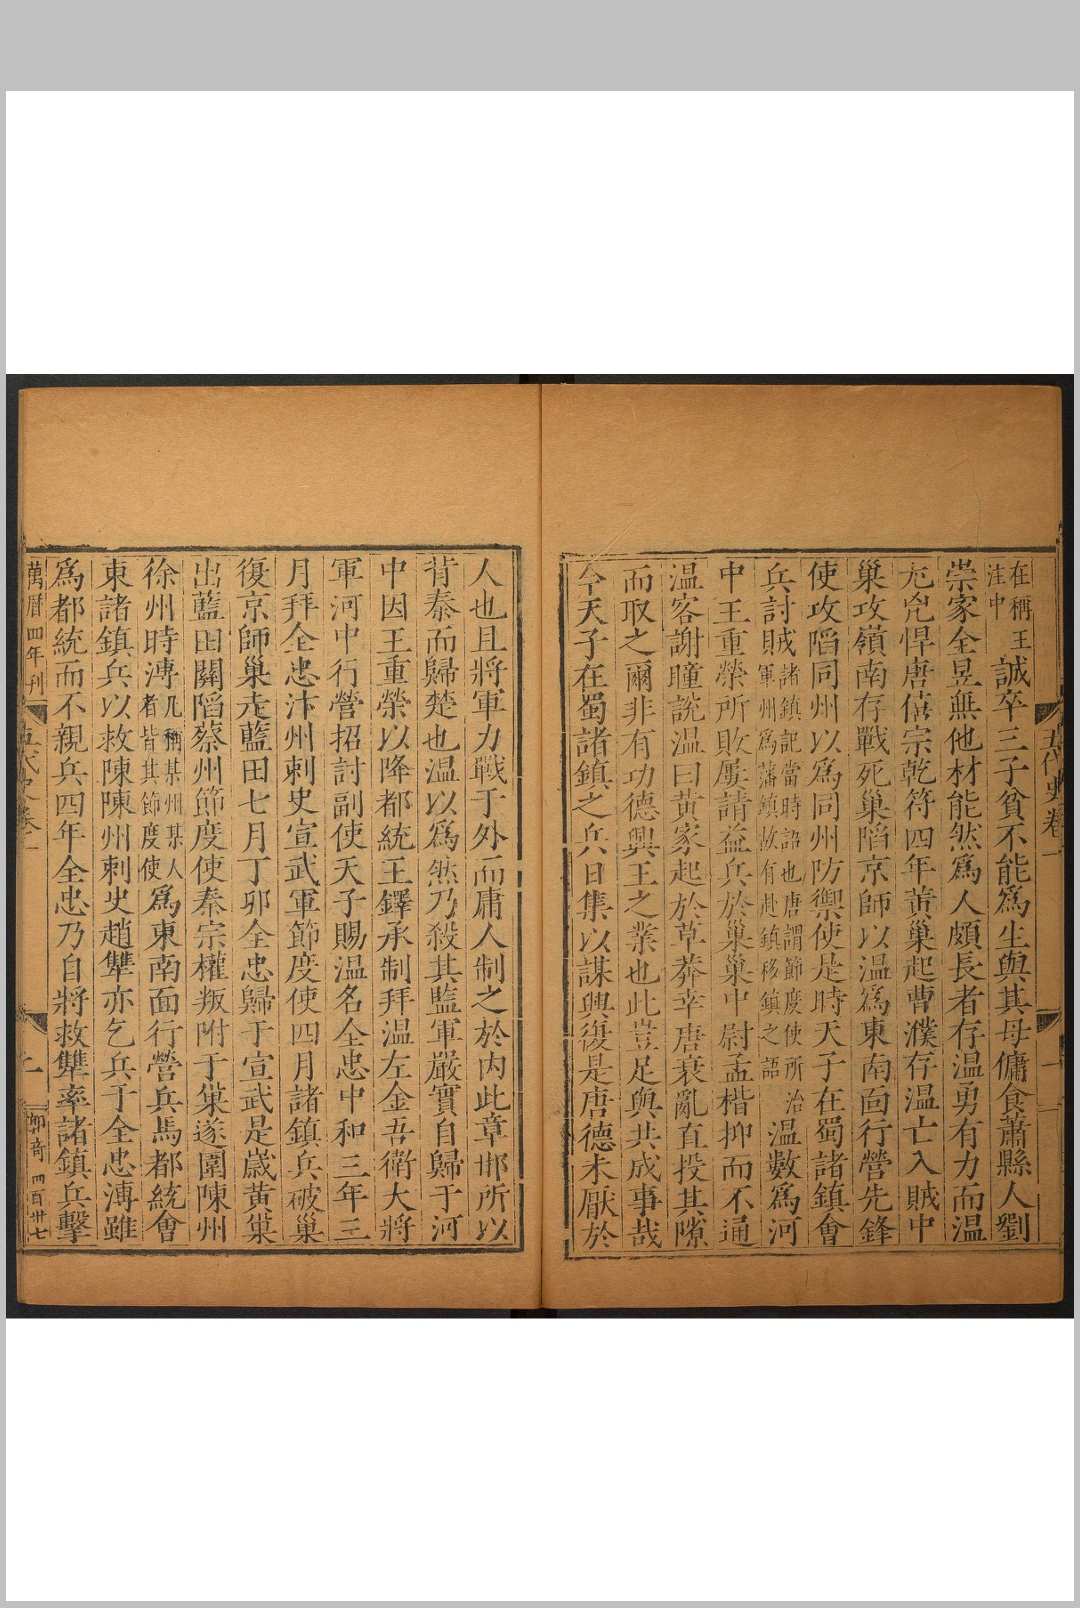 在稱王注中誠卒三子貧不能爲生與其母傭食蕭縣人劉
崇家全昱無他材能然爲人頗長者存温勇有力而温
尤兇悍唐僖宗乾符四年黃巢起曹濮存温亡入賊中
巢攻嶺南存戰死巢陷京師以温爲東南面行營先鋒
使攻陷同州以爲同州防禦使是時天子在蜀諸鎮會
兵討賊諸鎮記當時語也唐謂節度使所治軍州爲藩鎮故有赴鎮移鎮之語温數爲河
中王重榮所敗屢請益兵於巢巢中尉孟楷抑而不通
温客謝瞳說温曰黃家起於草莽幸唐衰亂直投其隙
而取之爾非有功德興王之業也此豈足與共成事哉
今天子在蜀諸鎮之兵日集以謀興復是唐德未厭於
人也且將軍力戰于外而庸人制之於内此章邯所以
背秦而歸楚也温以爲然乃殺其監軍嚴實自歸于河
中因王重榮以降都統王鐸承制拜温左金吾衛大將
軍河中行營招討副使天子賜温名全忠中和三年三
月拜全忠汴州刺史宣武軍節度使四月諸鎮兵破巢
復京師巢走藍田七月丁卯全忠歸于宣武是歲黃巢
出藍田關陷蔡州節度使秦宗權叛附于巢遂圍陳州
徐州時溥凡稱某州某人者皆其節度使爲東南面行營兵馬都統會
東諸鎮兵以救陳陳州刺史趙犨亦乞兵于全忠溥雖
爲都統而不親兵四年全忠乃自將救犨率諸鎮兵擊
萬曆四年刊
五代史卷一
二
四百卅七